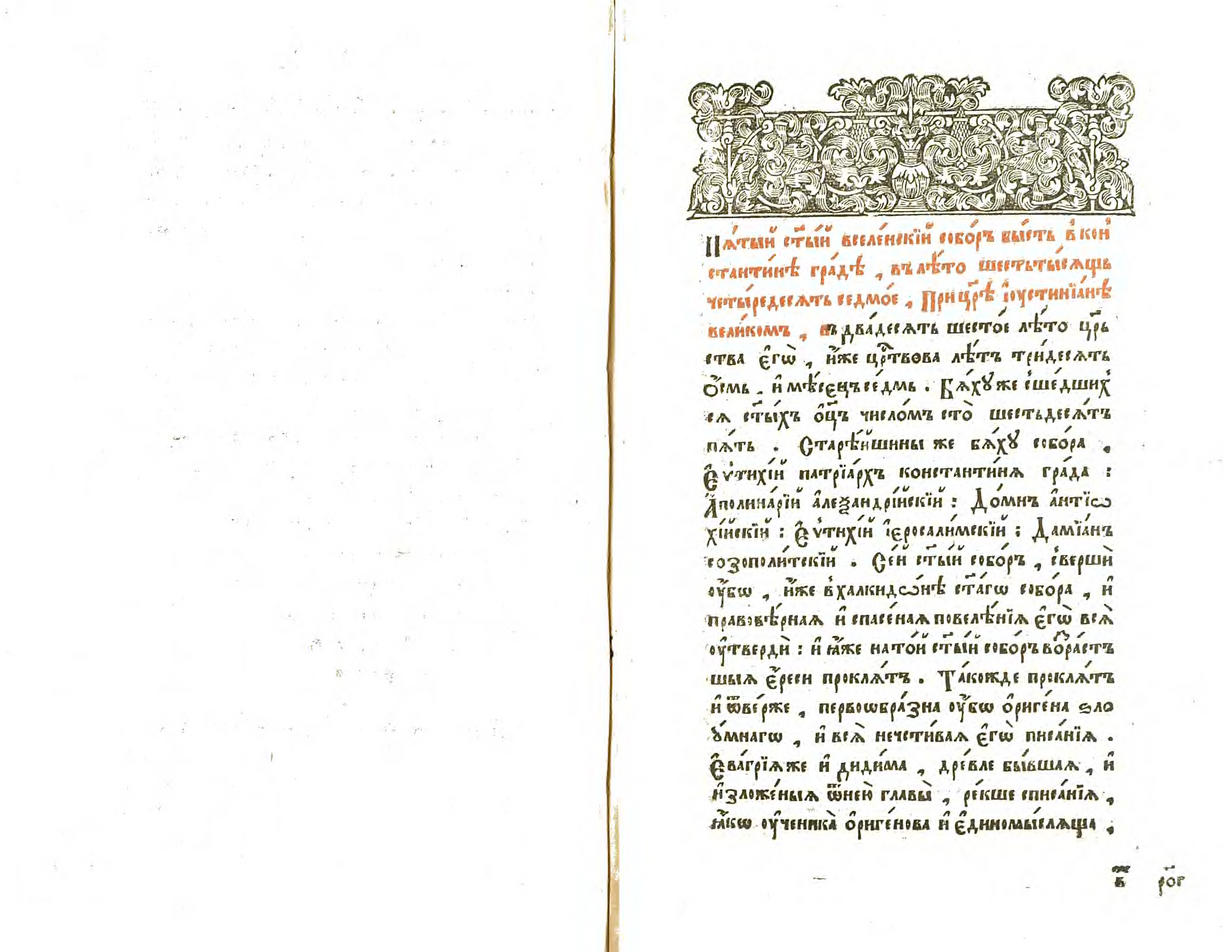 Пѧ́тый ст҃ы́й вселе́нскїй собо́ръ бы́сть в кон
стантинѣ̀ гра́дѣ , въ лѣ́то шестьты́сѧщь
четы́редесѧть седмо́е , При цр҃ѣ̀ і҆ꙋстинїа́нѣ
вели́комъ , въ два́десѧть шесто́е лѣ́то цр҃ь
ства є҆гѡ̀ , и҆́же цр҃твова лѣ́тъ три́десѧть
ѻ҆́смь , и҆ мѣ́сєцъ се́дмь . Бѧ́хꙋ же сше́дших
сѧ ст҃ы́хъ ѻ҆ц҃ъ число́мъ сто̀ шестьдесѧ́тъ
пѧ́ть . Старѣ́йшины же бѧ́хꙋ собо́ра ,
Є҆ѵти́хїй патрїа́рхъ константи́нѧ гра́да :
А҆полина́рїй а҆леѯандрі́йскїй : До́мнъ а҆нтїѡ
хі́йскїй : Є҆ѵти́хїй і҆єросали́мскїй : Дамїа́нъ
созополи́тскїй . Се́й ст҃ы́й собо́ръ , свершѝ
оу҆́бѡ , и҆́же в халкидѡ́нѣ ст҃а́гѡ собо́ра , и҆
правовѣ́рнаѧ и҆ спасе́наѧ повелѣ́нїѧ є҆гѡ̀ всѧ̀
оу҆твердѝ : и҆ ꙗ҆́же на то́й ст҃ы́й собо́ръ во́зраст
шыѧ є҆́реси проклѧ́тъ . Та́кожде проклѧ́тъ
и҆ ѿве́рже , первоѡбра́зна оу҆́бѡ ѻ҆риге́на ѕло
ꙋ́мнагѡ , и҆ всѧ̀ нечести́ваѧ є҆гѡ̀ писа́нїѧ .
Є҆ва́грїѧ же и҆ ди́дима , дре́вле бы́вшаѧ , и҆
и҆зложе́ныѧ ѿ нею̀ главы̀ , ре́кше списа́нїѧ ,
ꙗ҆́кѡ оу҆ченика̀ ѻ҆риге́нова и҆ є҆диномы́слѧща ,
в҃ рог